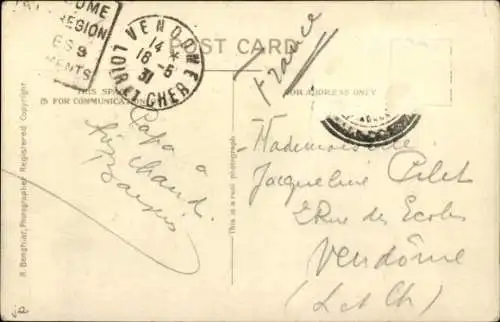 OME
REGION
ES 9
MENTS
VENDOME
14 *
16-5
31
LOIR ET CHER
POST CARD
France
THIS SPACE
IS FOR COMMUNICATION
FOR ADDRESS ONLY
Papa a
chaud.
Mademoiselle
Jacqueline Pilet
2 Rue des Ecoles
Vendôme
(L et Ch)
This is a real photograph
R. Benghiat, Photographer, Registered Copyright
ja